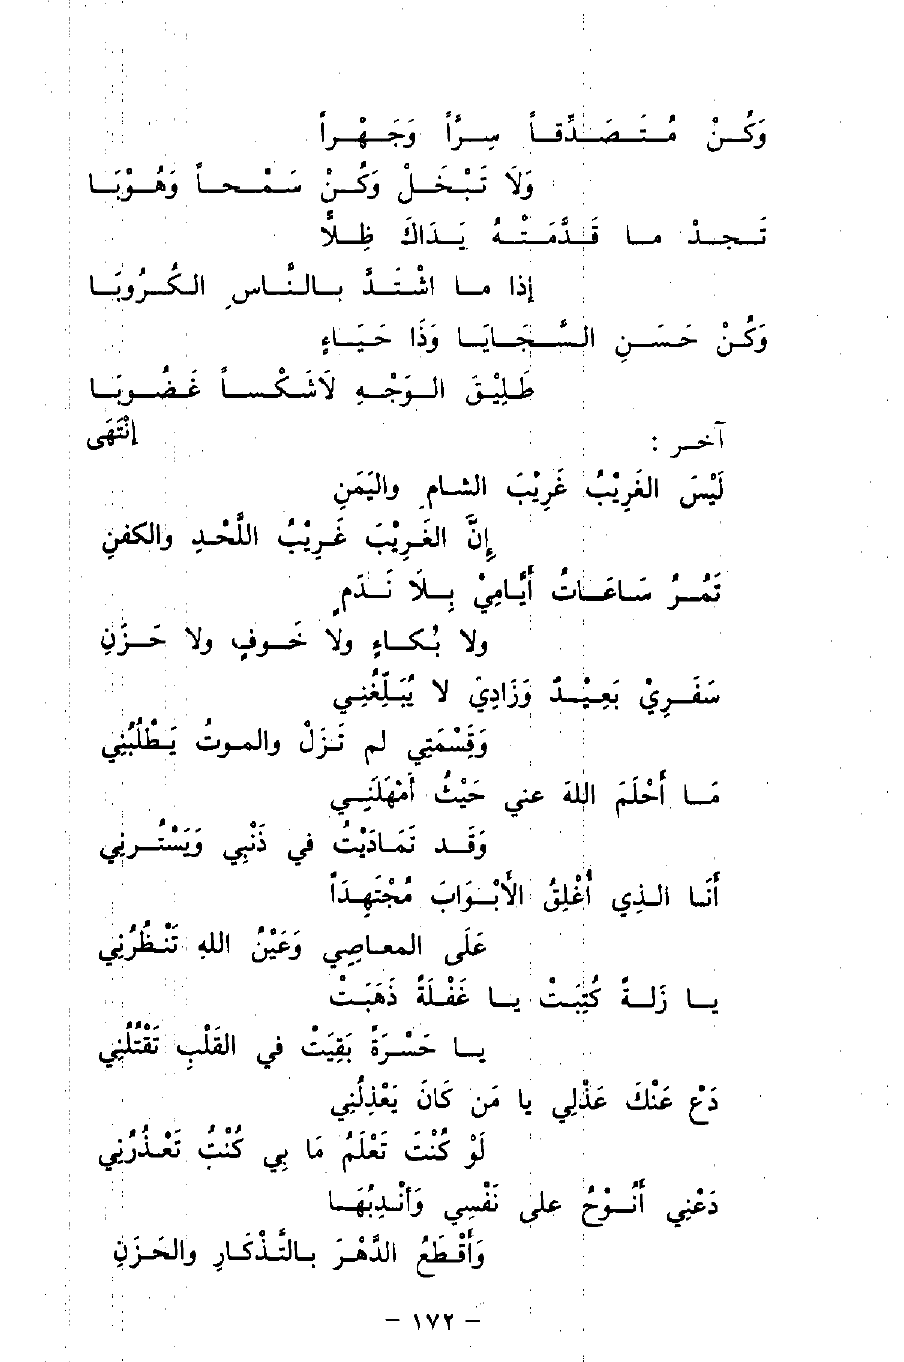 وَكُنْ مُتَصَدِّقاً سِرَّاً وَجَهْراً
وَلَا تَبْخَلْ وَكُنْ سَمْحاً وَهُوْبَا
تَجِدْ ما قَدَّمَتْهُ يَدَاكَ ظِلًّا
إذا ما اشْتَدَّ بالنَّاسِ الكُرُوبَا
وَكُنْ حَسَنِ السَّجَايَا وَذَا حَيَاءٍ
طَلِيْقَ الوَجْهِ لَاشَكْساً غَضُوبَا
آخر : إنْتَهَى
لَيْسَ الغَرِيْبُ غَرِيْبَ الشامِ واليَمَنِ
إِنَّ الغَرِيْبَ غَرِيْبُ اللَّحْدِ والكفنِ
تَمُرُ سَاعَاتُ أَيَّامِيْ بِلَا نَدَمٍ
ولا بُكاءٍ ولا خَوفٍ ولا حَزَنِ
سَفَرِيْ بَعِيْدٌ وَزَادِيْ لا يُبَلِّغُنِي
وَقِسْمَتِي لم تَزَلْ والموتُ يَطْلُبُنِي
مَا أَحْلَمَ اللهَ عني حَيْثُ أَمْهَلَنِي
وَقَد تَمَادَيْتُ في ذَنْبِي وَيَسْتُرنِي
أَنَا الذِي أُغْلِقُ الأَبْوَابَ مُجْتَهِدَاً
عَلَى المعاصِي وَعَيْنُ اللهِ تَنْظُرُنِي
يا زَلةً كُتِبَتْ يا غَفْلَةً ذَهَبَتْ
يا حَسْرَةً بَقِيَتْ في القَلْبِ تَقْتُلُنِي
دَعْ عَنْكَ عَذْلِي يا مَن كَانَ يَعْذِلُنِي
لَوْ كُنْتَ تَعْلَمُ مَا بِي كُنْتُ تَعْذُرُنِي
دَعْنِي أَنُوْحُ على نَفْسِي وَأَنْدِبُهَا
وَأَقْطَعُ الدَّهْرَ بالتَّذْكَارِ والحَزَنِ
- ١٧٢ -